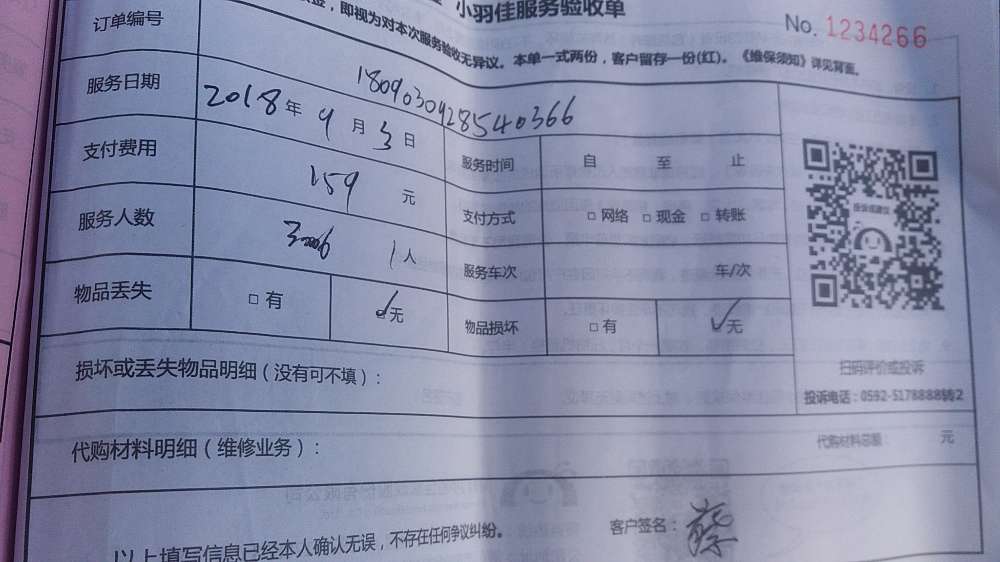 小羽佳服务验收单
No. 1234266
，即视为对本次服务验收无异议。本单一式两份，客户留存一份(红)。《维保须知》详见背面。
订单编号 1809030928540366
服务日期 2018年9月3日
服务时间 自 至 止
支付费用 159元
支付方式 □网络 □现金 □转账
服务人数 1人
服务车次 车/次
物品丢失 □有 ☑无
物品损坏 □有 ☑无
扫码评价或投诉
投诉电话：0592-5178888转2
损坏或丢失物品明细（没有可不填）：
代购材料明细（维修业务）：
代购材料总额： 元
以上填写信息已经本人确认无误，不存在任何争议纠纷。
客户签名：蔡